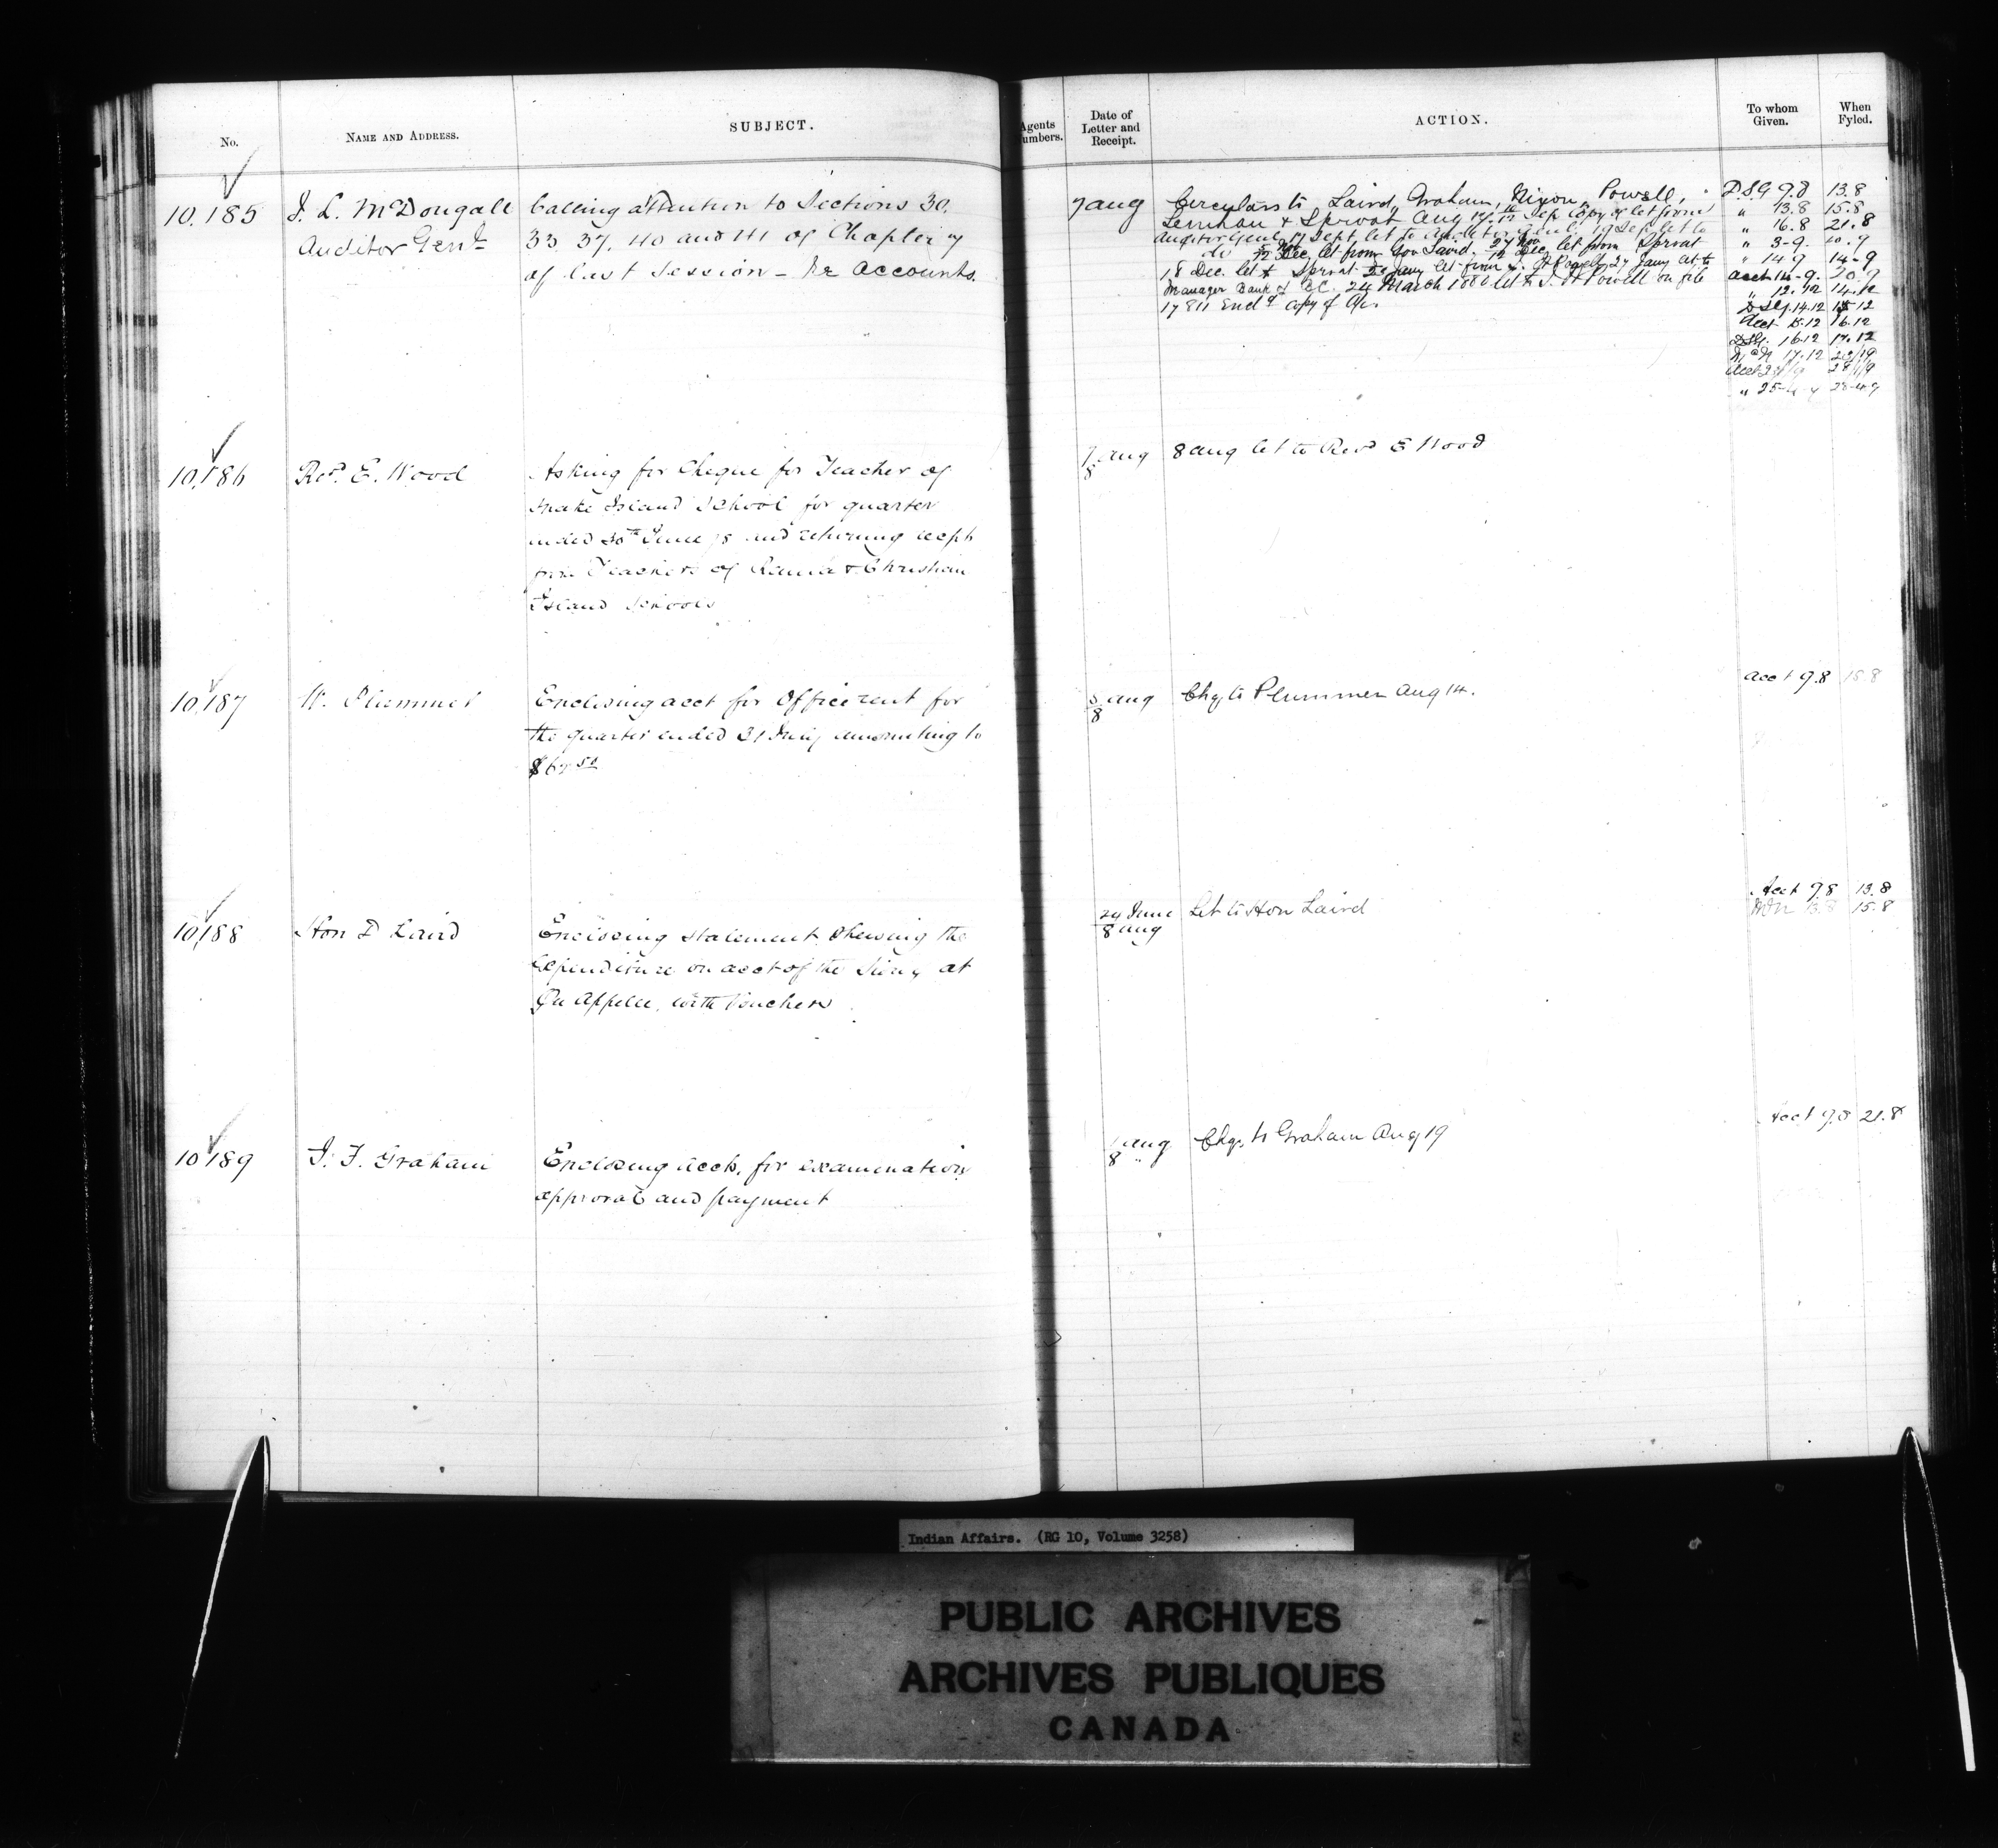 No.
NAME AND ADDRESS.
SUBJECT.
Agents
umbers.
Date of
Letter and
Receipt.
ACTION.
To whom
Given.
When
Fyled.
10.185
J. L. McDougall
Auditor Genl
Calling attention to Sections 30.
33 37. 40 and 41 of Chapter 7
of last Session - Re Accounts.
7 aug
Circulars to Laird, Graham, Nixon, Powell,
Lenihan & Sproat Aug 17. Sep copy of let from
Auditor Genl 17 Sept let to Auditor Genl. 19 Sep let to
do Dec let from Gov Laird. Dec let from Sproat
18 Dec. let to Sproat Jany let from Powell 27 Jany let to
Manager Bank of BC. 24 March 1880 let to Powell on file
17811 Encl copy of
D.S.G 9.8 13.8
" 13.8 15.8
" 16.8 21.8
" 3-9.
" 14 9 14-9
acct 14-9. 20.9
" 12.12 14.12
14.12 15 12
Acct 15.12 16.12
16.12 17.12
17.12
10,186
Revd. E. Wood
Asking for Cheque for Teacher of
Snake Island School for quarter
ended 30th June 78 and returning accpts
from Teachers of Rama & Christian
Island Schools
7/8 aug
8 aug let to Revd E Wood
10,187
W. Plummer
Enclosing acct for Office rent for
the quarter ended 31 July amounting to
$67 50
8 aug
Chq to Plummer Aug 14.
acct 9.8 15.8
10,188
Hon D Laird
Enclosing statement shewing the
expenditure on acct of the Treaty at
Qu'Appelle, with Vouchers
29 June
8 aug
Let to Hon Laird
Acct 9.8 13.8
13.8 15.8
10 189
J. F. Graham
Enclosing accts, for examination
approval and payment
8 aug
Chqs to Graham Aug 19
Acct 9.8 21.8
Indian Affairs. (RG 10, Volume 3258)
PUBLIC ARCHIVES
ARCHIVES PUBLIQUES
CANADA